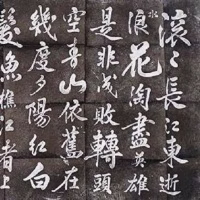 滚〻長江東逝
水浪花淘盡英雄
是非成敗轉頭
空青山依舊在
幾度夕陽紅白
髮漁樵江渚上